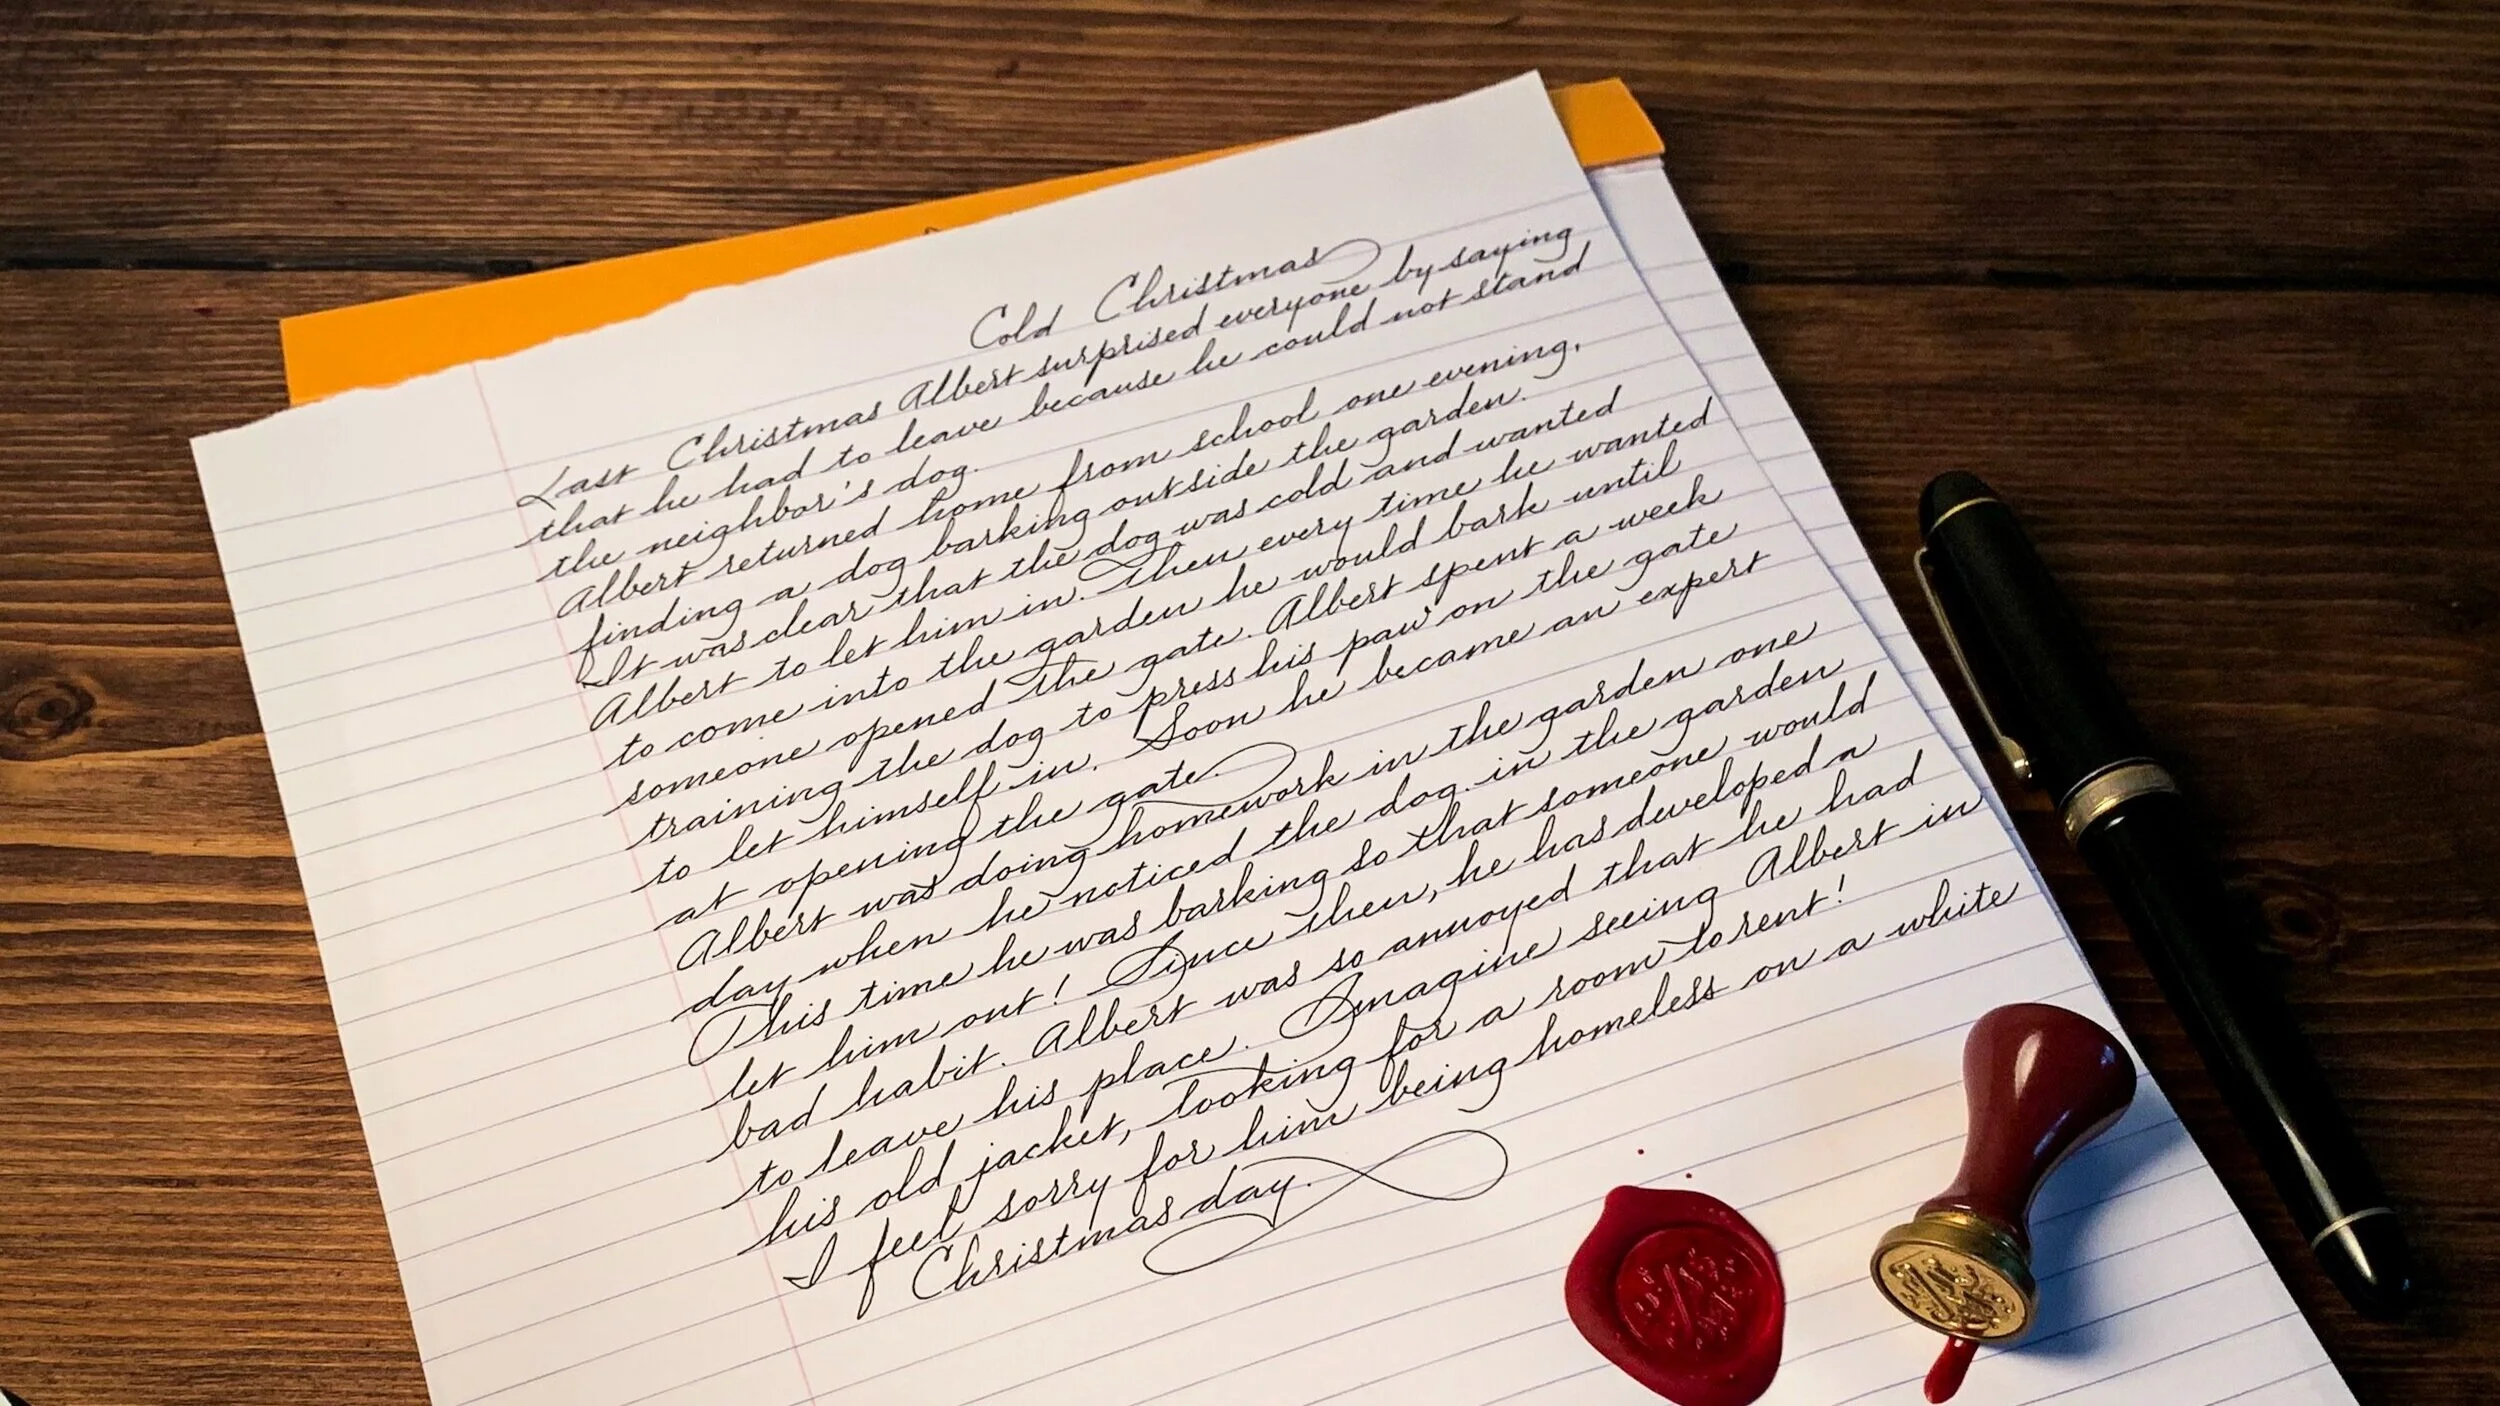 Cold Christmas
Last Christmas Albert surprised everyone by saying
that he had to leave because he could not stand
the neighbor's dog.
Albert returned home from school one evening,
finding a dog barking outside the garden.
It was clear that the dog was cold and wanted
Albert to let him in. Then every time he wanted
to come into the garden he would bark until
someone opened the gate. Albert spent a week
training the dog to press his paw on the gate
to let himself in. Soon he became an expert
at opening the gate.
Albert was doing homework in the garden one
day when he noticed the dog in the garden
This time he was barking so that someone would
let him out! Since then, he has developed a
bad habit. Albert was so annoyed that he had
to leave his place. Imagine seeing Albert in
his old jacket, looking for a room to rent!
I feel sorry for him being homeless on a white
Christmas day.